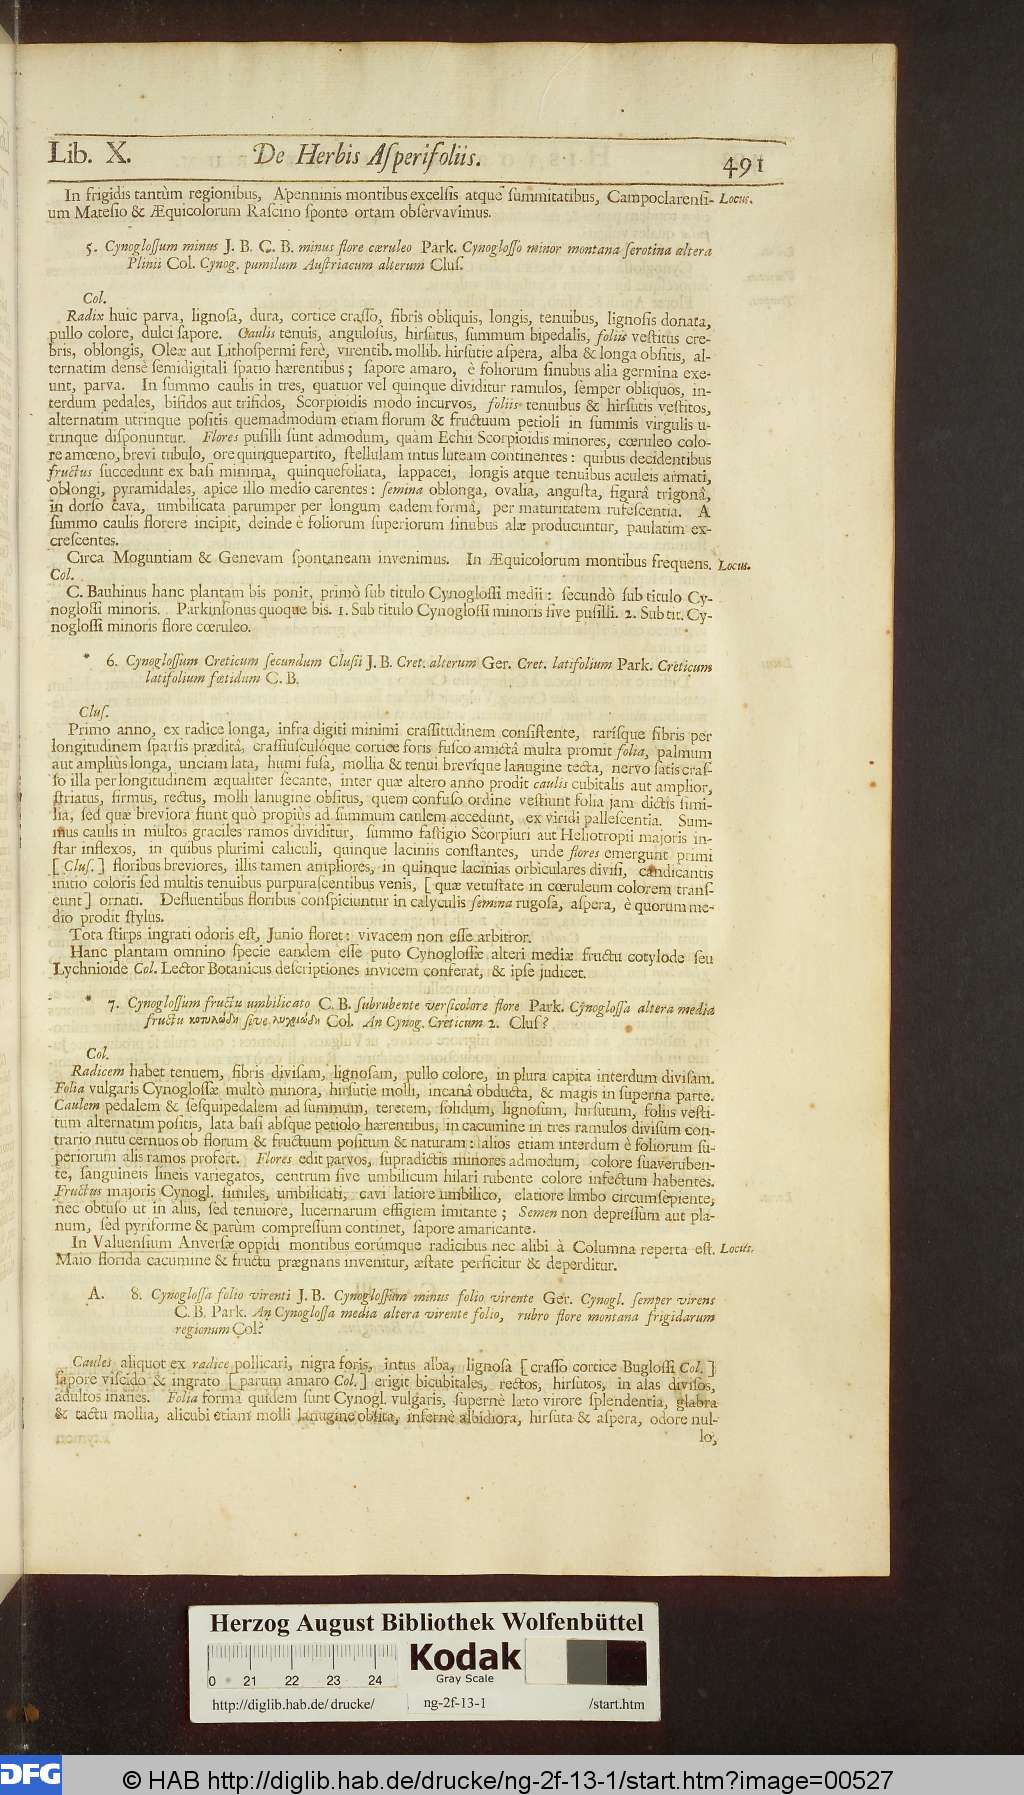 Lib. X. De Herbis Aſperifoliis. 491
In frigidis tantùm regionibus, Apenninis montibus excelſis atque ſummitatibus, Campoclarenſi- Locus.
um Mateſio & Æquicolorum Raſcino ſponte ortam obſervavimus.
5. Cynogloſſum minus J. B. C. B. minus flore cœruleo Park. Cynogloſſo minor montana ſerotina altera
Plinii Col. Cynog. pumilum Auſtriacum alterum Cluſ.
Col.
Radix huic parva, lignoſa, dura, cortice craſſo, fibris obliquis, longis, tenuibus, lignoſis donata,
pullo colore, dulci ſapore. Caulis tenuis, anguloſus, hirſutus, ſummum bipedalis, foliis veſtitus cre-
bris, oblongis, Oleæ aut Lithoſpermi ferè, virentib. mollib. hirſutie aſpera, alba & longa obſitis, al-
ternatim densè ſemidigitali ſpatio hærentibus; ſapore amaro, è foliorum ſinubus alia germina exe-
unt, parva. In ſummo caulis in tres, quatuor vel quinque dividitur ramulos, ſemper obliquos, in-
terdum pedales, bifidos aut trifidos, Scorpioidis modo incurvos, foliis tenuibus & hirſutis veſtitos,
alternatim utrinque poſitis quemadmodum etiam florum & fructuum petioli in ſummis virgulis u-
trinque diſponuntur. Flores puſilli ſunt admodum, quàm Echii Scorpioidis minores, cœruleo colo-
re amœno, brevi tubulo, ore quinquepartito, ſtellulam intus luteam continentes: quibus decidentibus
fructus ſuccedunt ex baſi minima, quinquefoliata, lappacei, longis atque tenuibus aculeis armati,
oblongi, pyramidales, apice illo medio carentes: ſemina oblonga, ovalia, anguſta, figurâ trigonâ,
in dorſo cava, umbilicata parumper per longum eadem formâ, per maturitatem rufeſcentia. A
ſummo caulis florere incipit, deinde è foliorum ſuperiorum ſinubus alæ producuntur, paulatim ex-
creſcentes.
Circa Moguntiam & Genevam ſpontaneam invenimus. In Æquicolorum montibus frequens. Locus.
Col.
C. Bauhinus hanc plantam bis ponit, primò ſub titulo Cynogloſſi medii: ſecundò ſub titulo Cy-
nogloſſi minoris. Parkinſonus quoque bis. 1. Sub titulo Cynogloſſi minoris ſive puſilli. 2. Sub tit. Cy-
nogloſſi minoris flore cœruleo.
* 6. Cynogloſſum Creticum ſecundum Cluſii J. B. Cret. alterum Ger. Cret. latifolium Park. Creticum
latifolium fœtidum C. B.
Cluſ.
Primo anno, ex radice longa, infra digiti minimi craſſitudinem conſiſtente, rariſque fibris per
longitudinem ſparſis præditâ, craſſiuſculóque cortice foris fuſco amictâ multa promit folia, palmum
aut ampliùs longa, unciam lata, humi fuſa, mollia & tenui brevíque lanugine tecta, nervo ſatis craſ-
ſo illa per longitudinem æqualiter ſecante, inter quæ altero anno prodit caulis cubitalis aut amplior,
ſtriatus, firmus, rectus, molli lanugine obſitus, quem confuſo ordine veſtiunt folia jam dictis ſimi-
lia, ſed quæ breviora fiunt quò propiùs ad ſummum caulem accedunt, ex viridi palleſcentia. Sum-
mus caulis in multos graciles ramos dividitur, ſummo faſtigio Scorpiuri aut Heliotropii majoris in-
ſtar inflexos, in quibus plurimi caliculi, quinque laciniis conſtantes, unde flores emergunt primi
[Cluſ.] floribus breviores, illis tamen ampliores, in quinque lacinias orbiculares diviſi, candicantis
initio coloris ſed multis tenuibus purpuraſcentibus venis, [quæ vetuſtate in cœruleum colorem tranſ-
eunt] ornati. Defluentibus floribus conſpiciuntur in calyculis ſemina rugoſa, aſpera, è quorum me-
dio prodit ſtylus.
Tota ſtirps ingrati odoris eſt, Junio floret: vivacem non eſſe arbitror.
Hanc plantam omnino ſpecie eandem eſſe puto Cynogloſſæ alteri mediæ fructu cotylode ſeu
Lychnioide Col. Lector Botanicus deſcriptiones invicem conferat, & ipſe judicet.
* 7. Cynogloſſum fructu umbilicato C. B. ſubrubente verſicolore flore Park. Cynogloſſa altera media
fructu κοτυλώδη ſive λυχνιώδη Col. An Cynog. Creticum 2. Cluſ?
Col.
Radicem habet tenuem, fibris diviſam, lignoſam, pullo colore, in plura capita interdum diviſam.
Folia vulgaris Cynogloſſæ multò minora, hirſutie molli, incanâ obducta, & magis in ſuperna parte.
Caulem pedalem & ſeſquipedalem ad ſummum, teretem, ſolidum, lignoſum, hirſutum, foliis veſti-
tum alternatim poſitis, lata baſi abſque petiolo hærentibus, in cacumine in tres ramulos diviſum con-
trario nutu cernuos ob florum & fructuum poſitum & naturam: alios etiam interdum è foliorum ſu-
periorum alis ramos profert. Flores edit parvos, ſupradictis minores admodum, colore ſuaveruben-
te, ſanguineis lineis variegatos, centrum ſive umbilicum hilari rubente colore infectum habentes.
Fructus majoris Cynogl. ſimiles, umbilicati, cavi latiore umbilico, elatiore limbo circumſepiente,
nec obtuſo ut in aliis, ſed tenuiore, lucernarum effigiem imitante; Semen non depreſſum aut pla-
num, ſed pyriforme & parùm compreſſum continet, ſapore amaricante.
In Valuenſium Anverſæ oppidi montibus eorúmque radicibus nec alibi à Columna reperta eſt. Locus.
Maio florida cacumine & fructu prægnans invenitur, æſtate perficitur & deperditur.
A. 8. Cynogloſſa folio virenti J. B. Cynogloſſum minus folio virente Ger. Cynogl. ſemper virens
C. B. Park. An Cynogloſſa media altera virente folio, rubro flore montana frigidarum
regionum Col?
Caules aliquot ex radice pollicari, nigra foris, intus alba, lignoſa [craſſo cortice Bugloſſi Col.]
ſapore viſcido & ingrato [parum amaro Col.] erigit bicubitales, rectos, hirſutos, in alas diviſos,
adultos inanes. Folia forma quidem ſunt Cynogl. vulgaris, ſupernè læto virore ſplendentia, glabra
& tactu mollia, alicubi etiam molli lanugine obſita, infernè albidiora, hirſuta & aſpera, odore nul-
lo,
Herzog August Bibliothek Wolfenbüttel
0 21 22 23 24
Kodak
Gray Scale
http://diglib.hab.de/drucke/ ng-2f-13-1 /start.htm
DFG © HAB http://diglib.hab.de/drucke/ng-2f-13-1/start.htm?image=00527